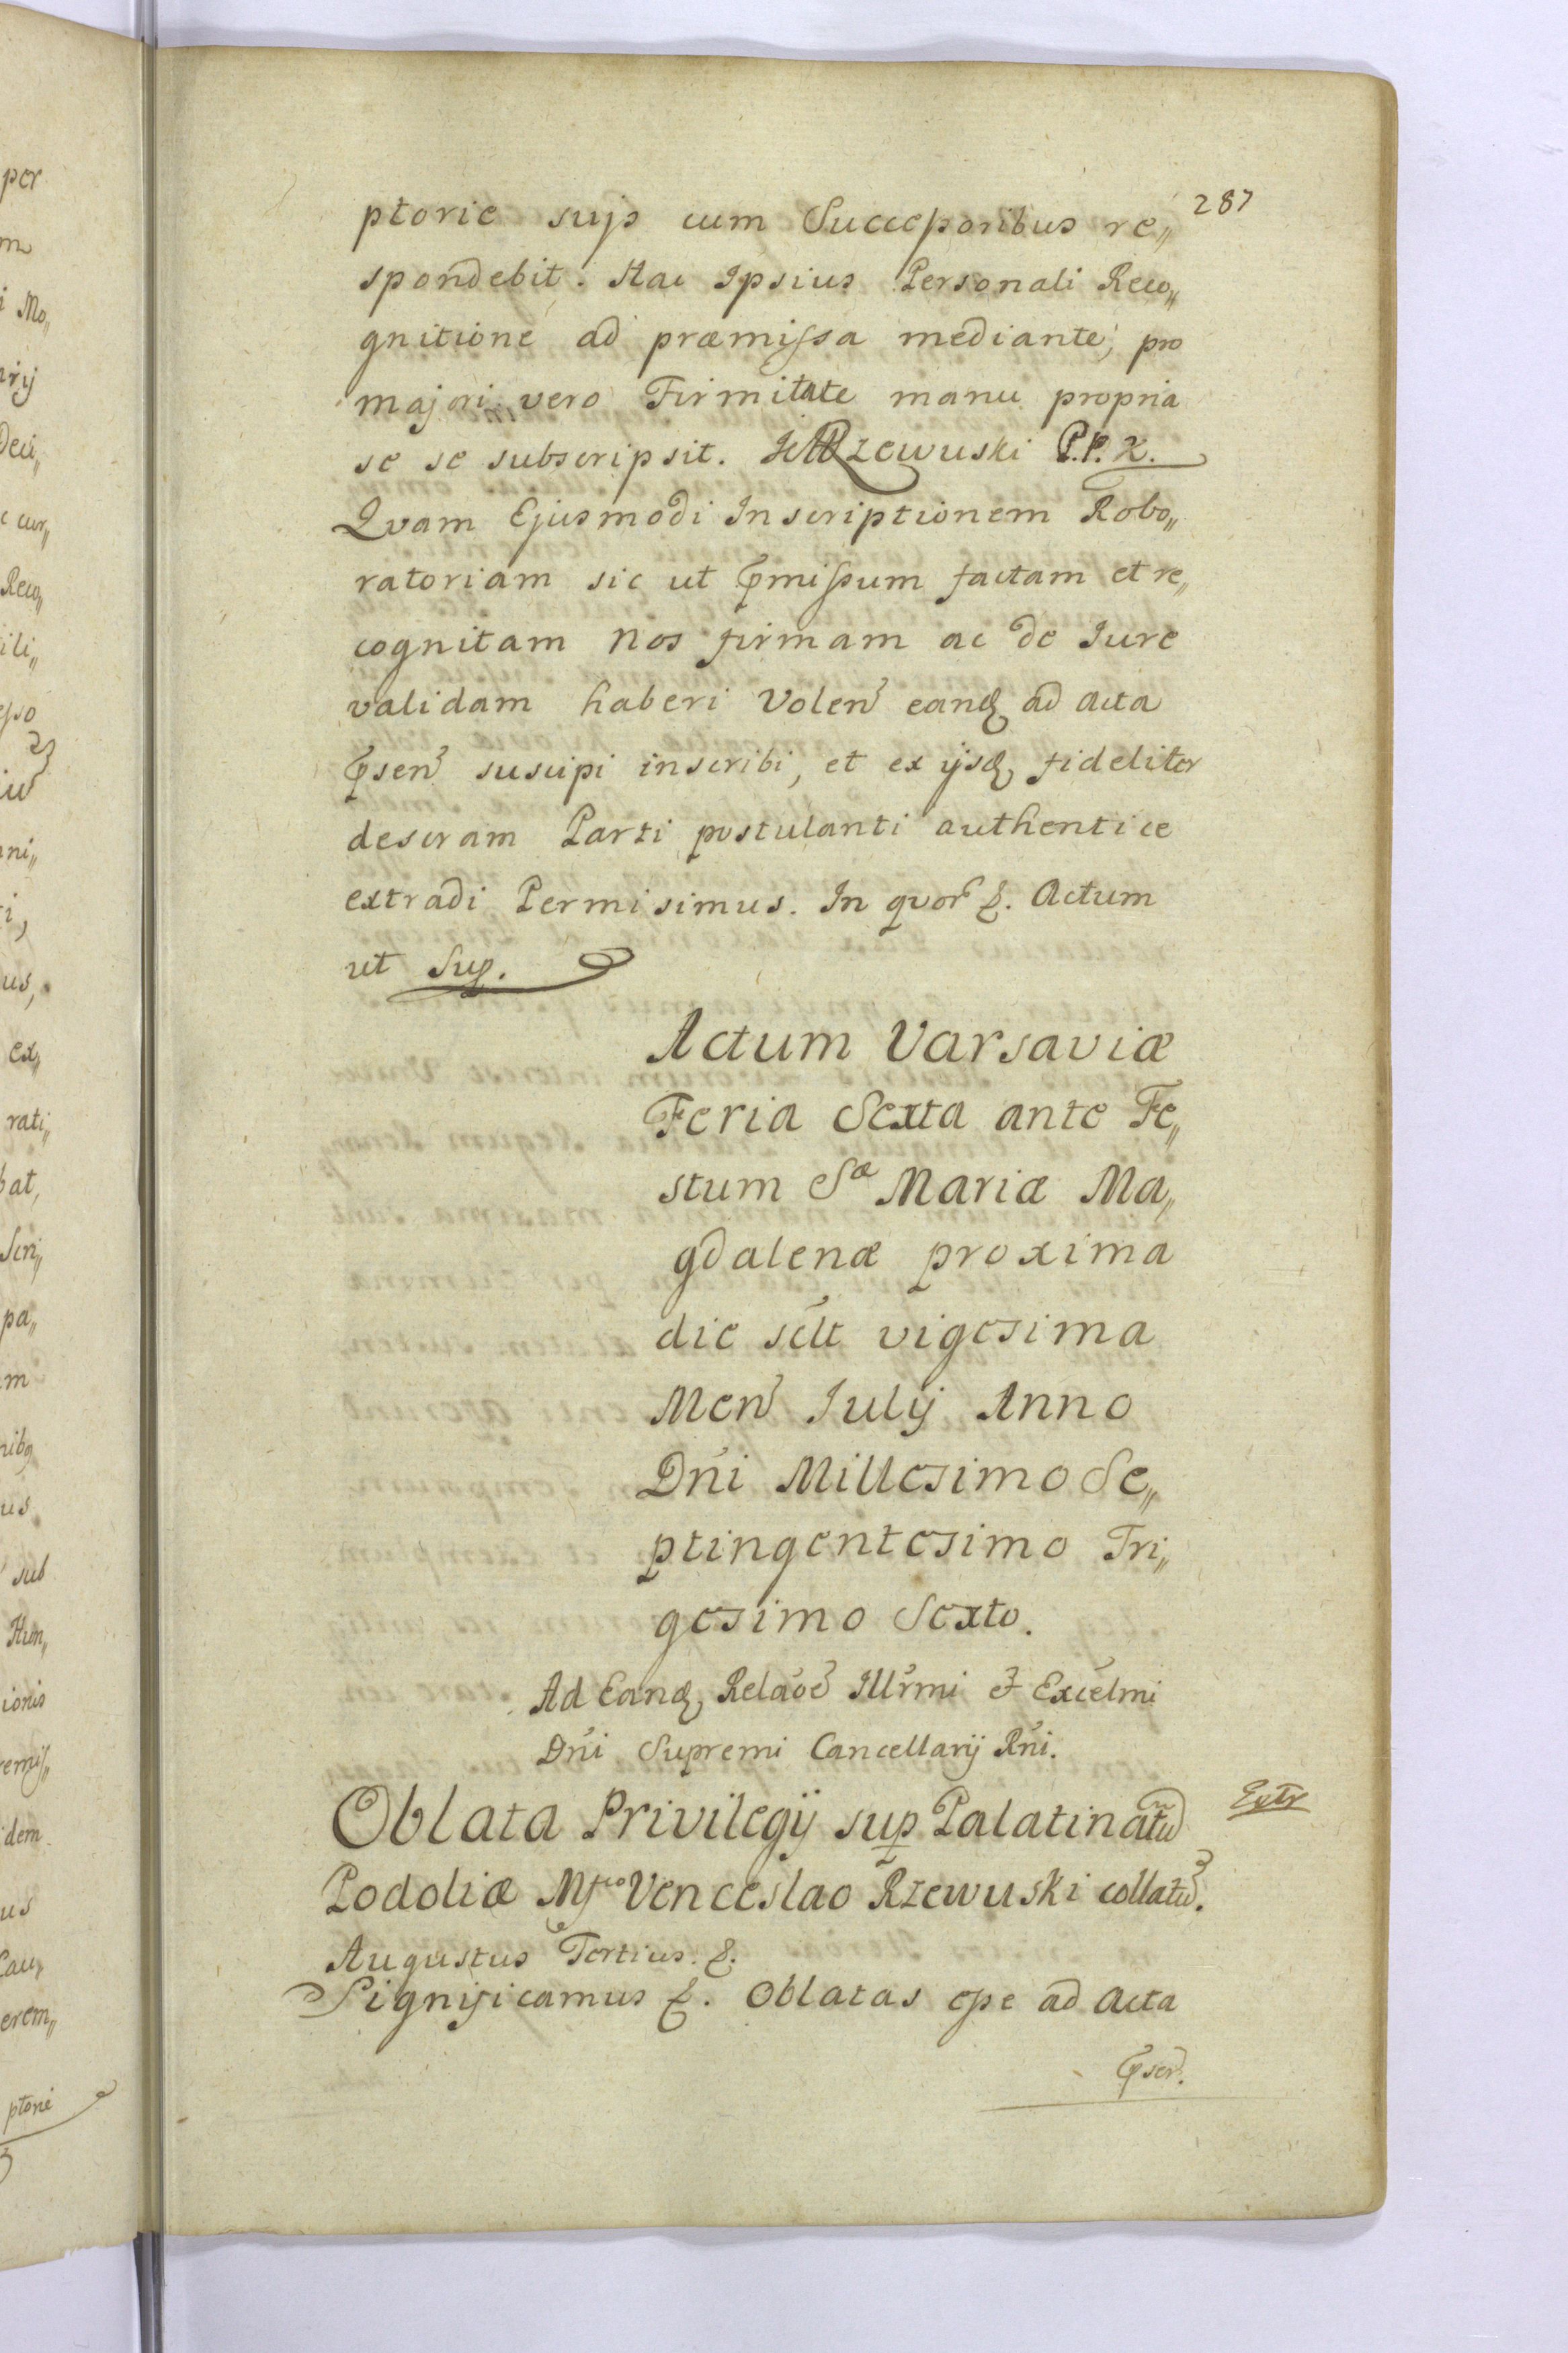 287
ptorie suis cum Successoribus re„
spondebit. Hac Ipsius Personali Reco„
gnitione ad præmissa mediante, pro
majori vero Firmitate manu propria
se se subscripsit. Rzewuski P.P.K.
Qvam Ejusmodi Inscriptionem Robo„
ratoriam sic ut pmissum factam et re„
cognitam Nos firmam ac de Iure
validam haberi Volen eanq ad Acta
psen suscipi inscribi, et ex ijsq fideliter
descram Parti postulanti authentice
extradi Permisimus. In qvor &. Actum
ut Sup.
Actum Varsaviæ
Feria Sexta ante Fe„
stum Sæ Mariæ Ma„
gdalenæ proxima
die sclt vigesima
Men Iulij Anno
Dni Millesimo Se„
ptingentesimo Tri„
gesimo Sexto.
Ad Eanq Relaoe Illrmi & Excelmi
Dni Supremi Cancellarij Rni.
Oblata Privilegij sup Palatinatu
Extr
Podoliæ Mfco Venceslao Rzewuski collatu.
Augustus Tertius &.
Significamus &. Oblatas esse ad Acta
psen.